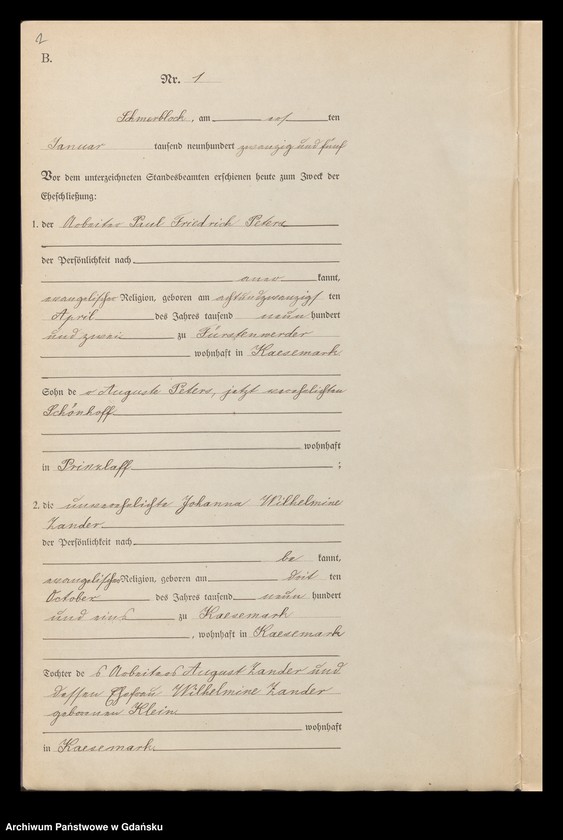 2
B.
Nr. 1
Schmerblock, am ten
Januar tausend neunhundert zwanzig und fünf
Vor dem unterzeichneten Standesbeamten erschienen heute zum Zweck der
Eheschließung:
1. der Arbeiter Paul Friedrich Peters
der Persönlichkeit nach
kannt,
evangelischer Religion, geboren am achtundzwanzigs ten
April des Jahres tausend neun hundert
und zwei zu Fürstenwerder
wohnhaft in Kaesemark
Sohn de r Auguste Peters, jetzt verehelichten
Schönhoff
wohnhaft
in Prinzlaff ;
2. die unverehelichte Johanna Wilhelmine
Zander
der Persönlichkeit nach
be kannt,
evangelischer Religion, geboren am ten
October des Jahres tausend neun hundert
und eins zu Kaesemark
, wohnhaft in Kaesemark
Tochter de s Arbeiters August Zander und
dessen Ehefrau Wilhelmine Zander
geborenen Klein
wohnhaft
in Kaesemark
Archiwum Państwowe w Gdańsku